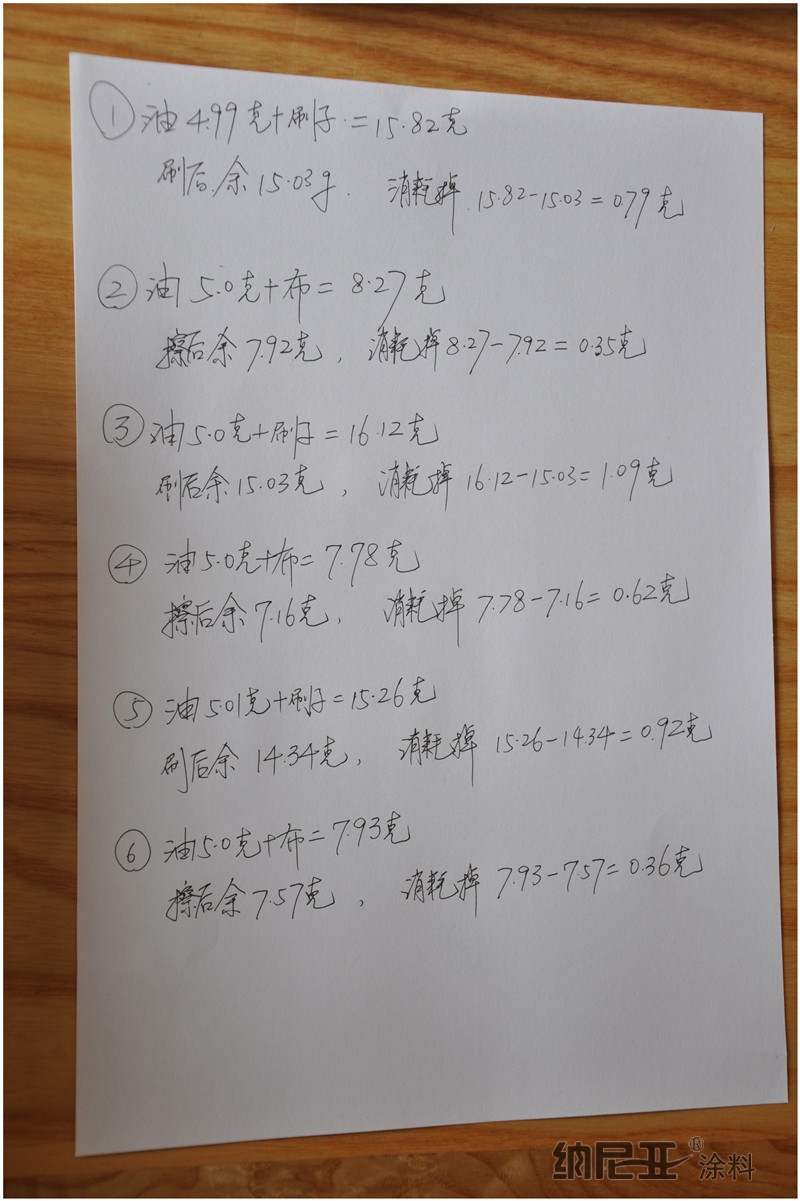 ① 油4.99克+刷子=15.82克
刷后余15.03g. 消耗掉 15.82-15.03=0.79克
② 油5.0克+布=8.27克
擦后余7.92克, 消耗掉8.27-7.92=0.35克
③ 油5.0克+刷子=16.12克
刷后余15.03克, 消耗掉16.12-15.03=1.09克
④ 油5.0克+布=7.78克
擦后余7.16克, 消耗掉7.78-7.16=0.62克
⑤ 油5.01克+刷子=15.26克
刷后余14.34克, 消耗掉15.26-14.34=0.92克
⑥ 油5.0克+布=7.93克
擦后余7.57克, 消耗掉7.93-7.57=0.36克
纳尼亚®涂料